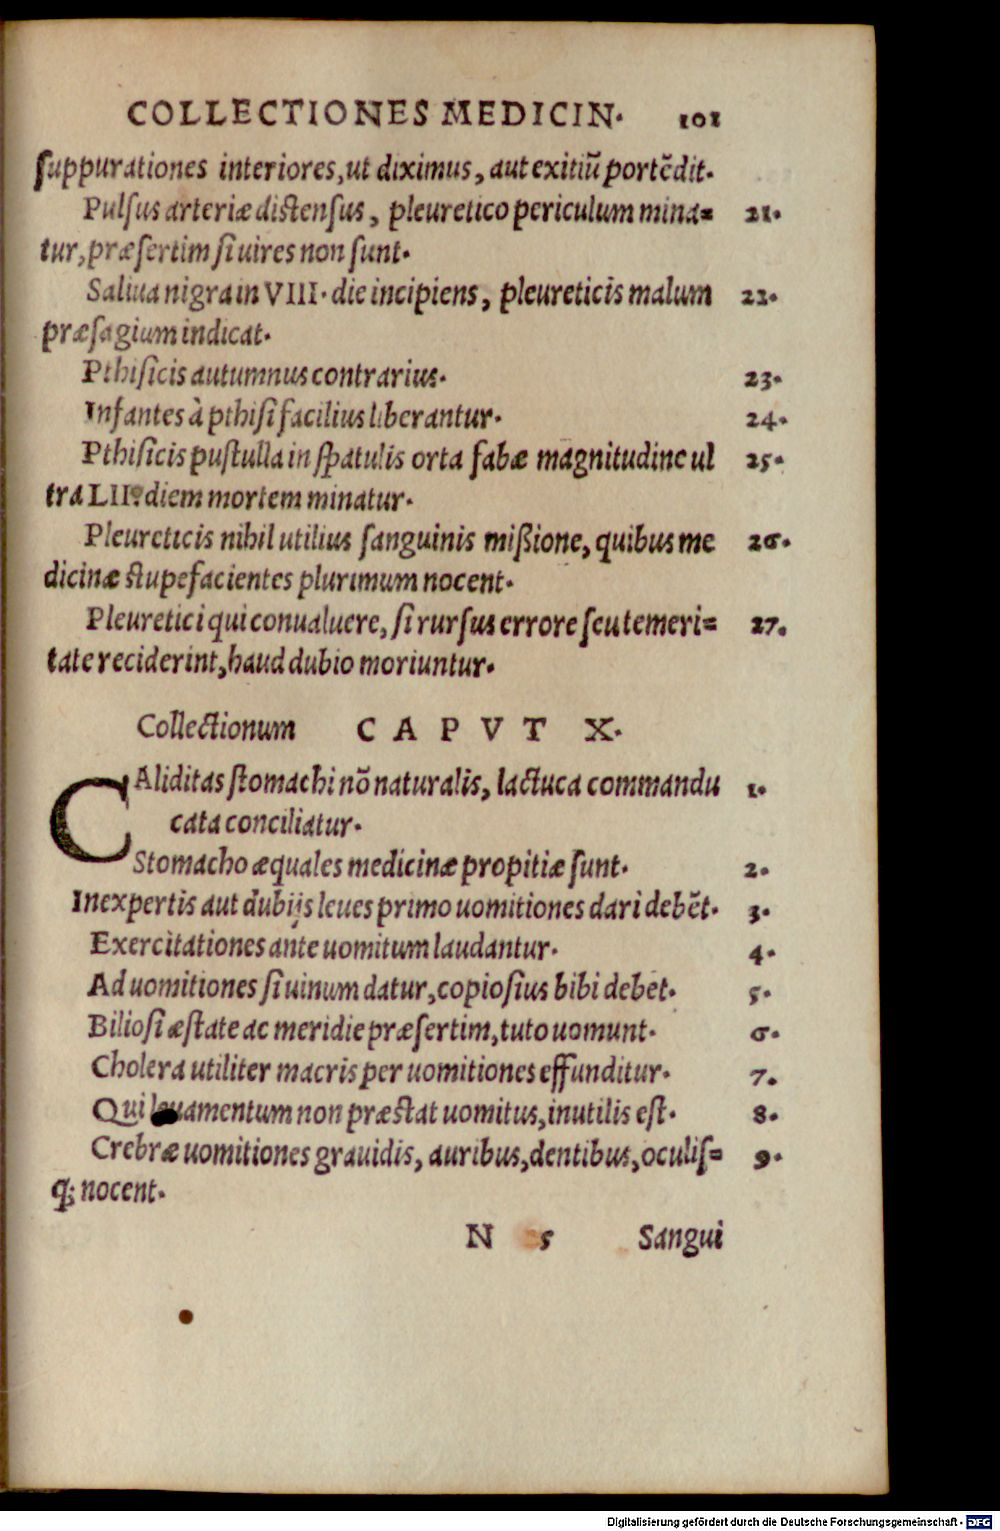 COLLECTIONES MEDICIN. 101
ſuppurationes interiores, ut diximus, aut exitiũ portẽdit.
Pulſus arteriæ diſtenſus, pleuretico periculum mina= 21.
tur, præſertim ſi uires non ſunt.
Saliua nigra in VIII. die incipiens, pleureticis malum 22.
præſagium indicat.
Pthiſicis autumnus contrarius. 23.
Infantes à pthiſi facilius liberantur. 24.
Pthiſicis puſtulla in ſpatulis orta fabæ magnitudine ul 25.
tra LII. diem mortem minatur.
Pleureticis nihil utilius ſanguinis mißione, quibus me 26.
dicinæ ſtupefacientes plurimum nocent.
Pleuretici qui conualuere, ſi rurſus errore ſeu temeri= 27.
tate reciderint, haud dubio moriuntur.
Collectionum CAPVT X.
CAliditas ſtomachi nõ naturalis, lactuca commandu 1.
cata conciliatur.
Stomacho æquales medicinæ propitiæ ſunt. 2.
Inexpertis aut dubijs leues primo uomitiones dari debẽt. 3.
Exercitationes ante uomitum laudantur. 4.
Ad uomitiones ſi uinum datur, copioſius bibi debet. 5.
Bilioſi æſtate ac meridie præſertim, tuto uomunt. 6.
Cholera utiliter macris per uomitiones effunditur. 7.
Qui leuamentum non præſtat uomitus, inutilis eſt. 8.
Crebræ uomitiones grauidis, auribus, dentibus, oculiſ= 9.
q; nocent.
N 5 Sangui
Digitalisierung gefördert durch die Deutsche Forschungsgemeinschaft - DFG